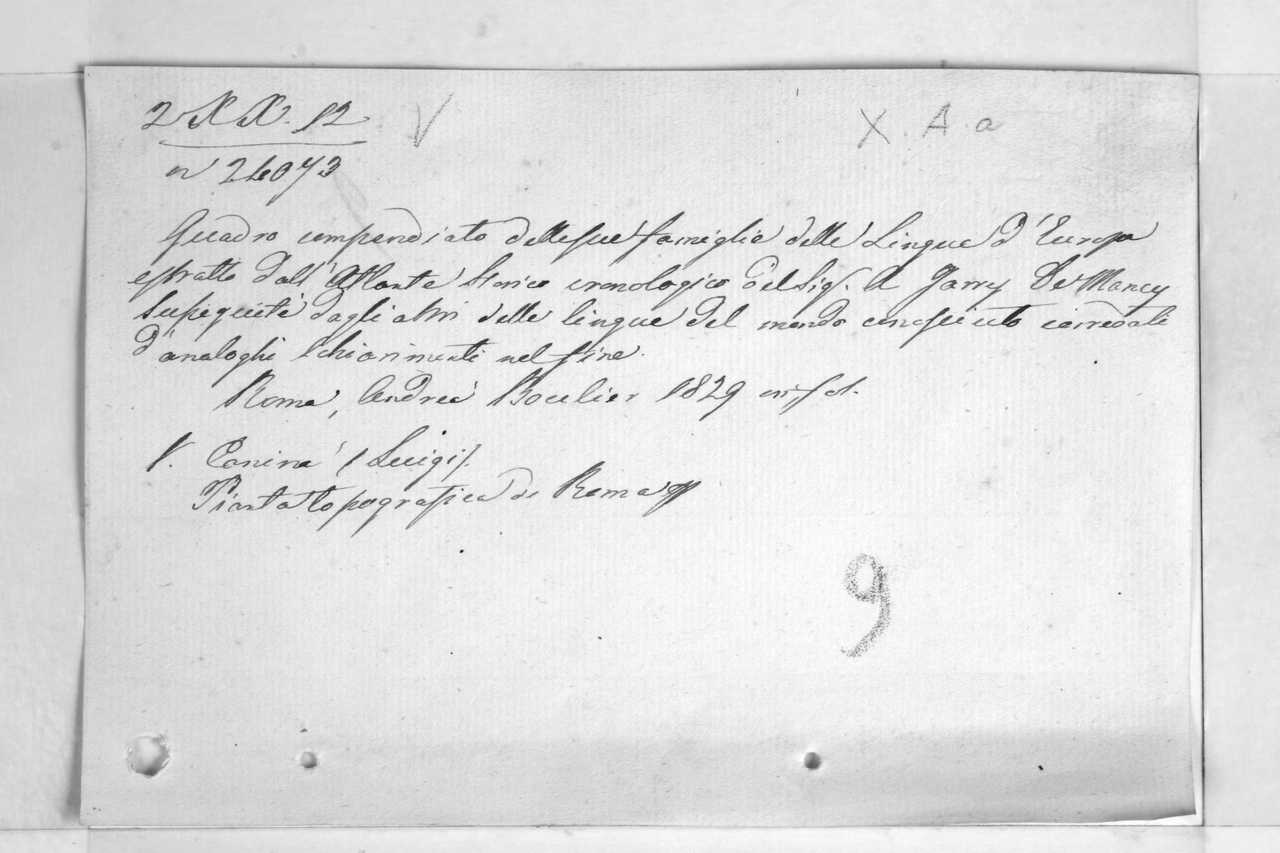 2 XX. 12
V
X. A. a
n 24073
Quadro compendiato delle sue famiglie delle Lingue d'Europa
estratto dall'Atlante Storico cronologico del Sig. A Jarry De Mancy
dagli altri delle lingue del mondo conosciuto corredati
d'analoghi schiarimenti nel fine.
Roma, Andrea 1829 in fol.
V. Canina (Luigi).
Pianta topografica di Roma
9